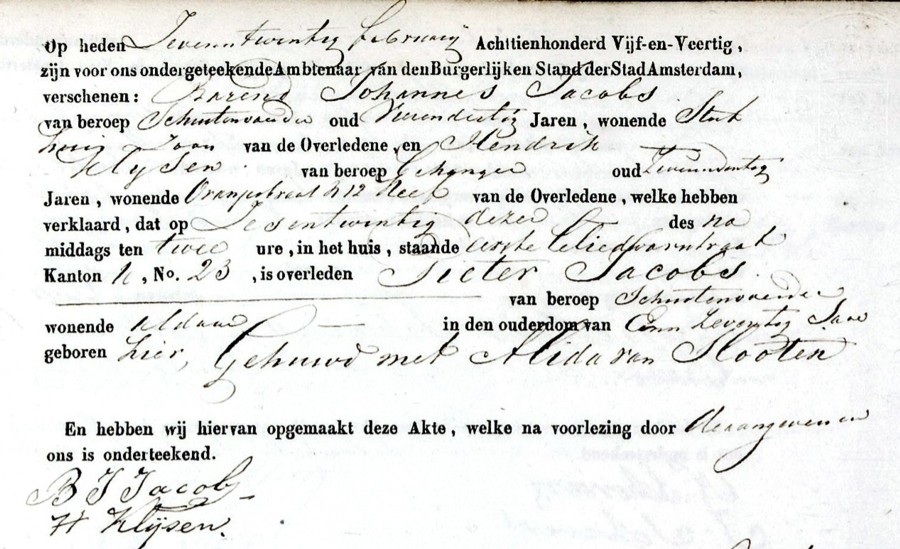 Op heden Zevenentwintig February Achttienhonderd Vijf-en-Veertig,
zijn voor ons ondergeteekende Ambtenaar van den Burgerlijken Stand der Stad Amsterdam,
verschenen: Barend Johannes Jacobs
van beroep Schuitenvoerder oud Vierendertig Jaren, wonende
Zoon van de Overledene, en Hendrik
Klijsen van beroep Behanger oud
Jaren, wonende Oranjestraat N 12 Neef van de Overledene, welke hebben
verklaard, dat op Zesentwintig dezer des na
middags ten twee ure, in het huis, staande eerste
Kanton N, No. 23, is overleden Pieter Jacobs.
van beroep Schuitenvoerder
wonende Aldaar in den ouderdom van Een Zeventig Jare
geboren hier, Gehuwd met Alida van Slooten
En hebben wij hiervan opgemaakt deze Akte, welke na voorlezing door de aangevers en
ons is onderteekend.
B J Jacobs
H Klijsen.